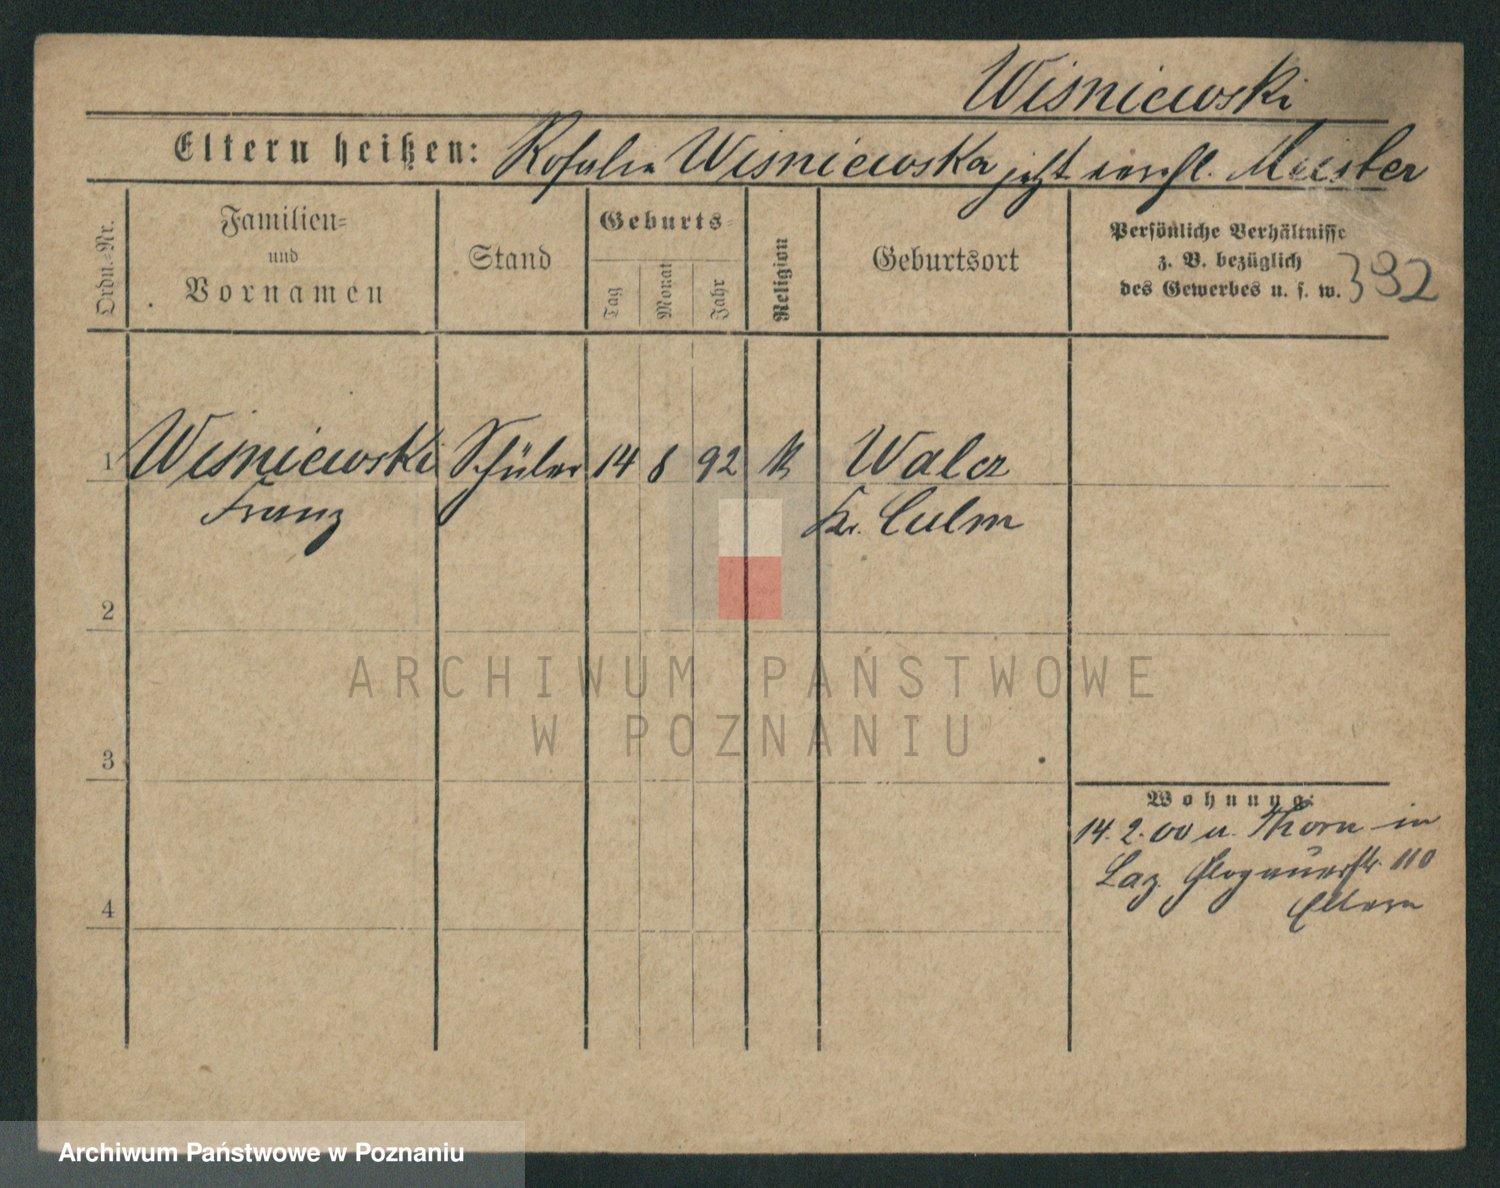 Wisniewski
Eltern heißen: Rosalia Wisniewska jetzt verehl. Meister
Ordn.-Nr.
Familien-
und
Vornamen
Stand
Geburts-
Tag
Monat
Jahr
Religion
Geburtsort
Persönliche Verhältnisse
z. B. bezüglich
des Gewerbes u. s. w.
392
1 Wisniewski Schüler 14 8 92 K Walcz
Franz Kr. Culm
2
3
4
Wohnung:
14. 2. 00 u. Thorn in
Laz. Glogauerstr. 110
Eltern
ARCHIWUM PAŃSTWOWE
W POZNANIU
Archiwum Państwowe w Poznaniu